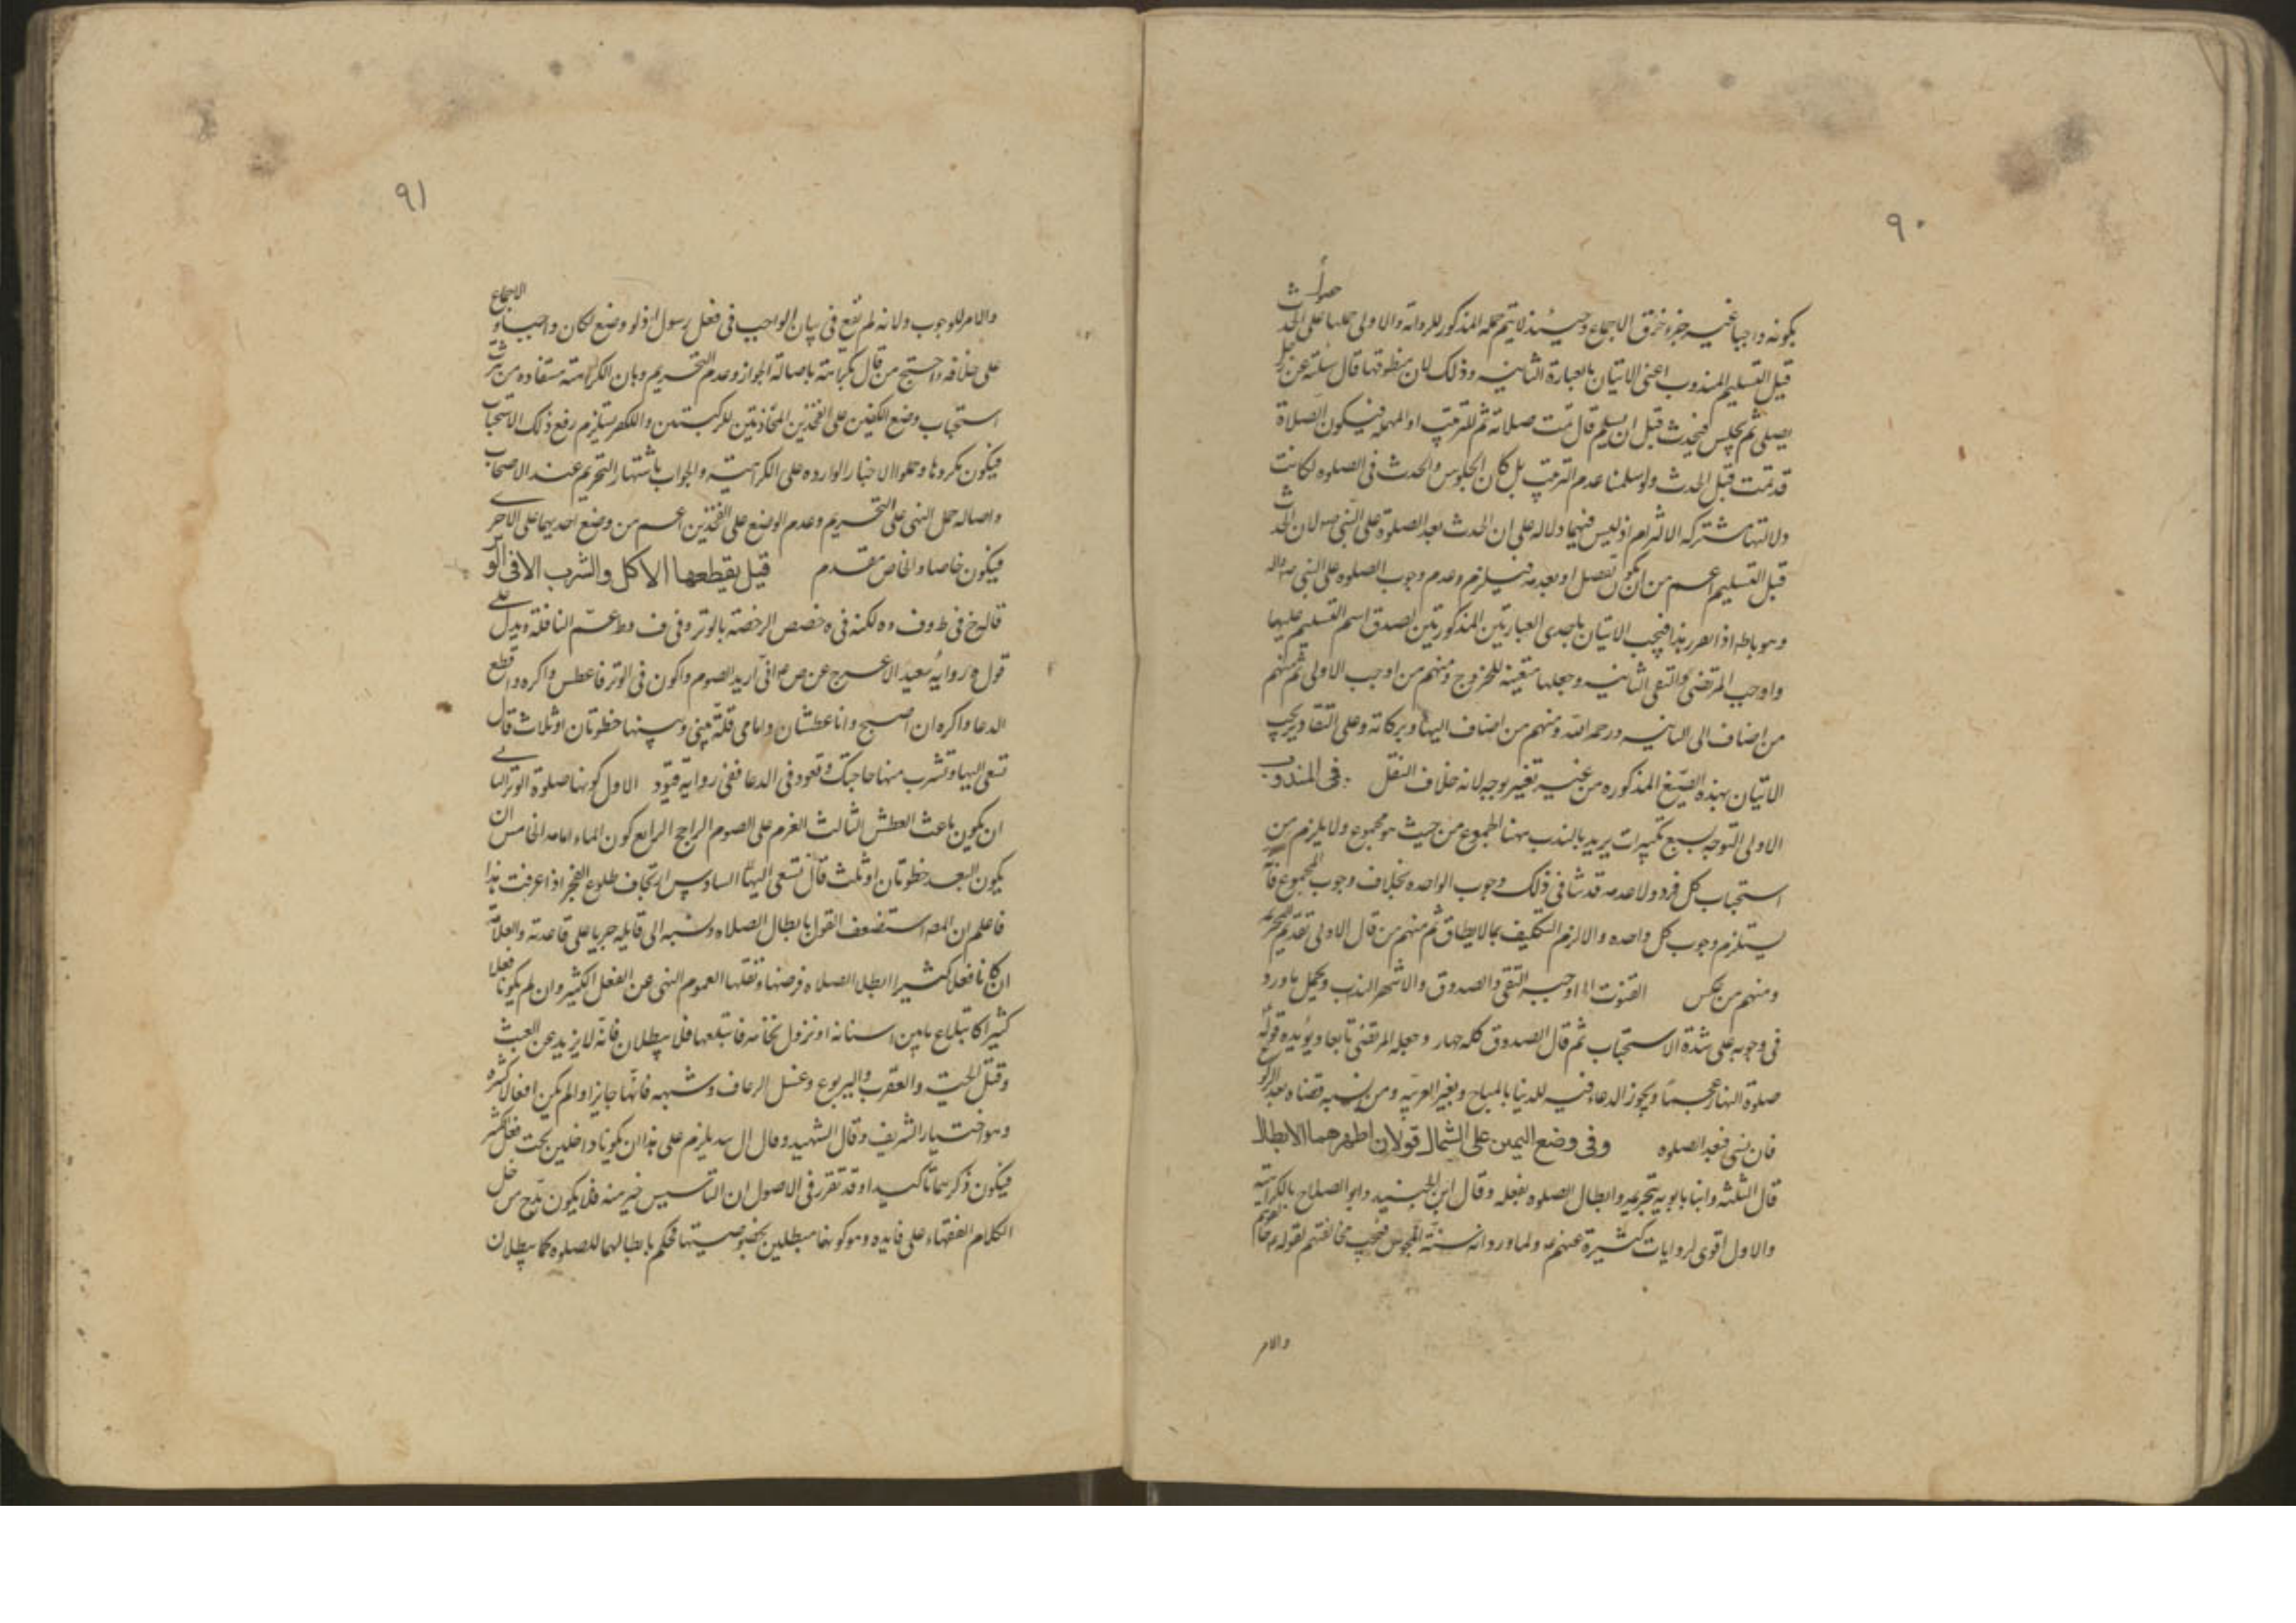 ٩٠
يكونه واجبا غير جزء خرق الاجماع وحينئذ لا يتم حمله المذكور للرواية والاولى حملها على الحدث
قبل التسليم المندوب اعنى الاتيان بالعبارة الثانيه وذلك لان منطوقها قال سئلته عن رجل
يصلى ثم يجلس فيحدث قبل ان يسلم قال تمت صلاته ثم للترتيب او المهمله فيكون الصلاة
قد تمت قبل الحدث ولو سلمنا عدم الترتيب بل كان الجلوس والحدث فى الصلوه لكانت
دلالتها مشتركه الالزام اذ ليس فيهما دلاله على ان الحدث بعد الصلوة على النبى ص لان الحدث
قبل التسليم اعم من ان يكون بفصل او بعدمه فيلزم وعدم وجوب الصلوه على النبى ص واله
وهو باطل اذا تقرر هذا فيجب الاتيان باحدى العبارتين المذكورتين لصدق اسم التسليم عليها
واوجب المرتضى والتقى الثانيه وجعلها متعينه للخروج ومنهم من اوجب الاولى ثم منهم
من اضاف الى الثانيه ورحمه الله ومنهم من اضاف اليها وبركاته وعلى التقادير يجب
الاتيان بهذه الصيغ المذكوره من غير تغيير بوجه لانه خلاف النقل فى المندوب
الاولى التوجه بسبع تكبيرات يريد بالندب مهنا المجموع من حيث هو مجموع ولا يلزم من
استحباب كل فرد ولا عدمه قد شا فى ذلك وجوب الواحده بخلاف وجوب المجموع فانه
يستلزم وجوب كل واحده والا لزم التكليف بما لا يطاق ثم منهم من قال الاولى تقديم التحريمه
ومنهم من عكس القنوت اوجبه التقى والصدوق والاشهر الندب ويحمل ما ورد
فى وجوبه على شدة الاستحباب ثم قال الصدوق كله جهار وجعله المرتضى تابعا ويؤيده قوله
صلوة النهار عجما ويجوز الدعاء فيه للدنيا بالمباح وبغير العربيه ومن نسيه قضاه بعد الركوع
فان نسى فبعد الصلوه وفى وضع اليمين على الشمال قولان اظهرهما الابطال
قال الثلثه وابنا بابويه بتحريمه وابطال الصلوه بفعله وقال ابن الجنيد وابو الصلاح بالكراهية
والاول اقوى لروايات كثيرة عنهم ع ولما ورد انه سنة المجوس فيجب مخالفتهم لقوله ع خالفوهم
والامر
٩١
والامر للوجوب ولانه لم يقع فى بيان الواجب فى فعل رسول اذ لو وضع لكان واجبا والاجماع
على خلافه واحتج من قال بكراهته باصالة الجواز وعدم التحريم وبان الكراهته مستفاده من ترك
استحباب وضع الكفين على الفخذين المحاذيتين للركبتين والتكفر يستلزم رفع ذلك الاستحباب
فيكون مكروها وحملوا الاخبار الوارده على الكراهية والجواب باشتهار التحريم عند الاصحاب
واصاله حمل النهى على التحريم وعدم الوضع على الفخذين اعم من وضع احديهما على الاخرى
فيكون خاصا والخاص مقدم قيل يقطعها الاكل والشرب الا فى الوتر
قاله خ فى ط وف وه لكنه فى ه خصص الرخصة بالوتر وفى ف وط عمم النافلة ويدل على
قول خ رواية سعيد الاعرج عن ص ع انى اريد الصوم واكون فى الوتر فاعطش واكره واقطع
الدعا واكره ان اصبح وانا عطشان وامامى قلة بينى وبينها خطوتان او ثلاث قال
تسعى اليها وتشرب منها حاجتك وتعود فى الدعا ففى رواية قيود الاول كونها صلوة الوتر الثانى
ان يكون باعث العطش الثالث العزم على الصوم الراجح الرابع كون الماء امامه الخامس ان
يكون البعد خطوتان او ثلث قال تسعى اليها السادس ان تخاف طلوع الفجر اذا عرفت هذا
فاعلم ان المصـ استضعف القول بابطال الصلاه ونسبه الى قايله جريا على قاعدته والعلامة
ان كانا فعلا كثيرا ابطل الصلاه فرضها ونفلها لعموم النهى عن الفعل الكثير وان لم يكونا فعلا
كثيرا كابتلاع مابين اسنانه او نزول نخامه فابتلعها فلا يبطلان فانه لا يزيد عن العبث
وقتل الحية والعقرب واليربوع وغسل الرعاف وشبهه فانها جايزا ولم يكن افعالا كثيره
وهو اختيار الشريف وقال الشهيد وقال ال سد يلزم على هذا ان يكونا داخلين تحت فعل كثير
فيكون ذكرهما تاكيدا وقد تقرر فى الاصول ان التاسيس خير منه فلا يكون بدّ ح من حمل
الكلام الفقهاء على فايده وهو كونهما مبطلين بخصوصيتها فحكم بابطالهما للصلوه كما يبطلان